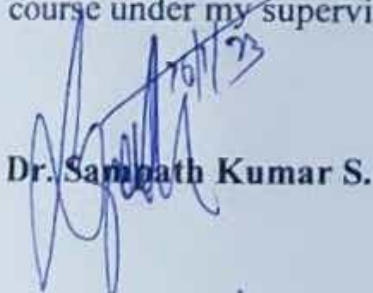 course under my supervi
Dr. Sampath Kumar S.